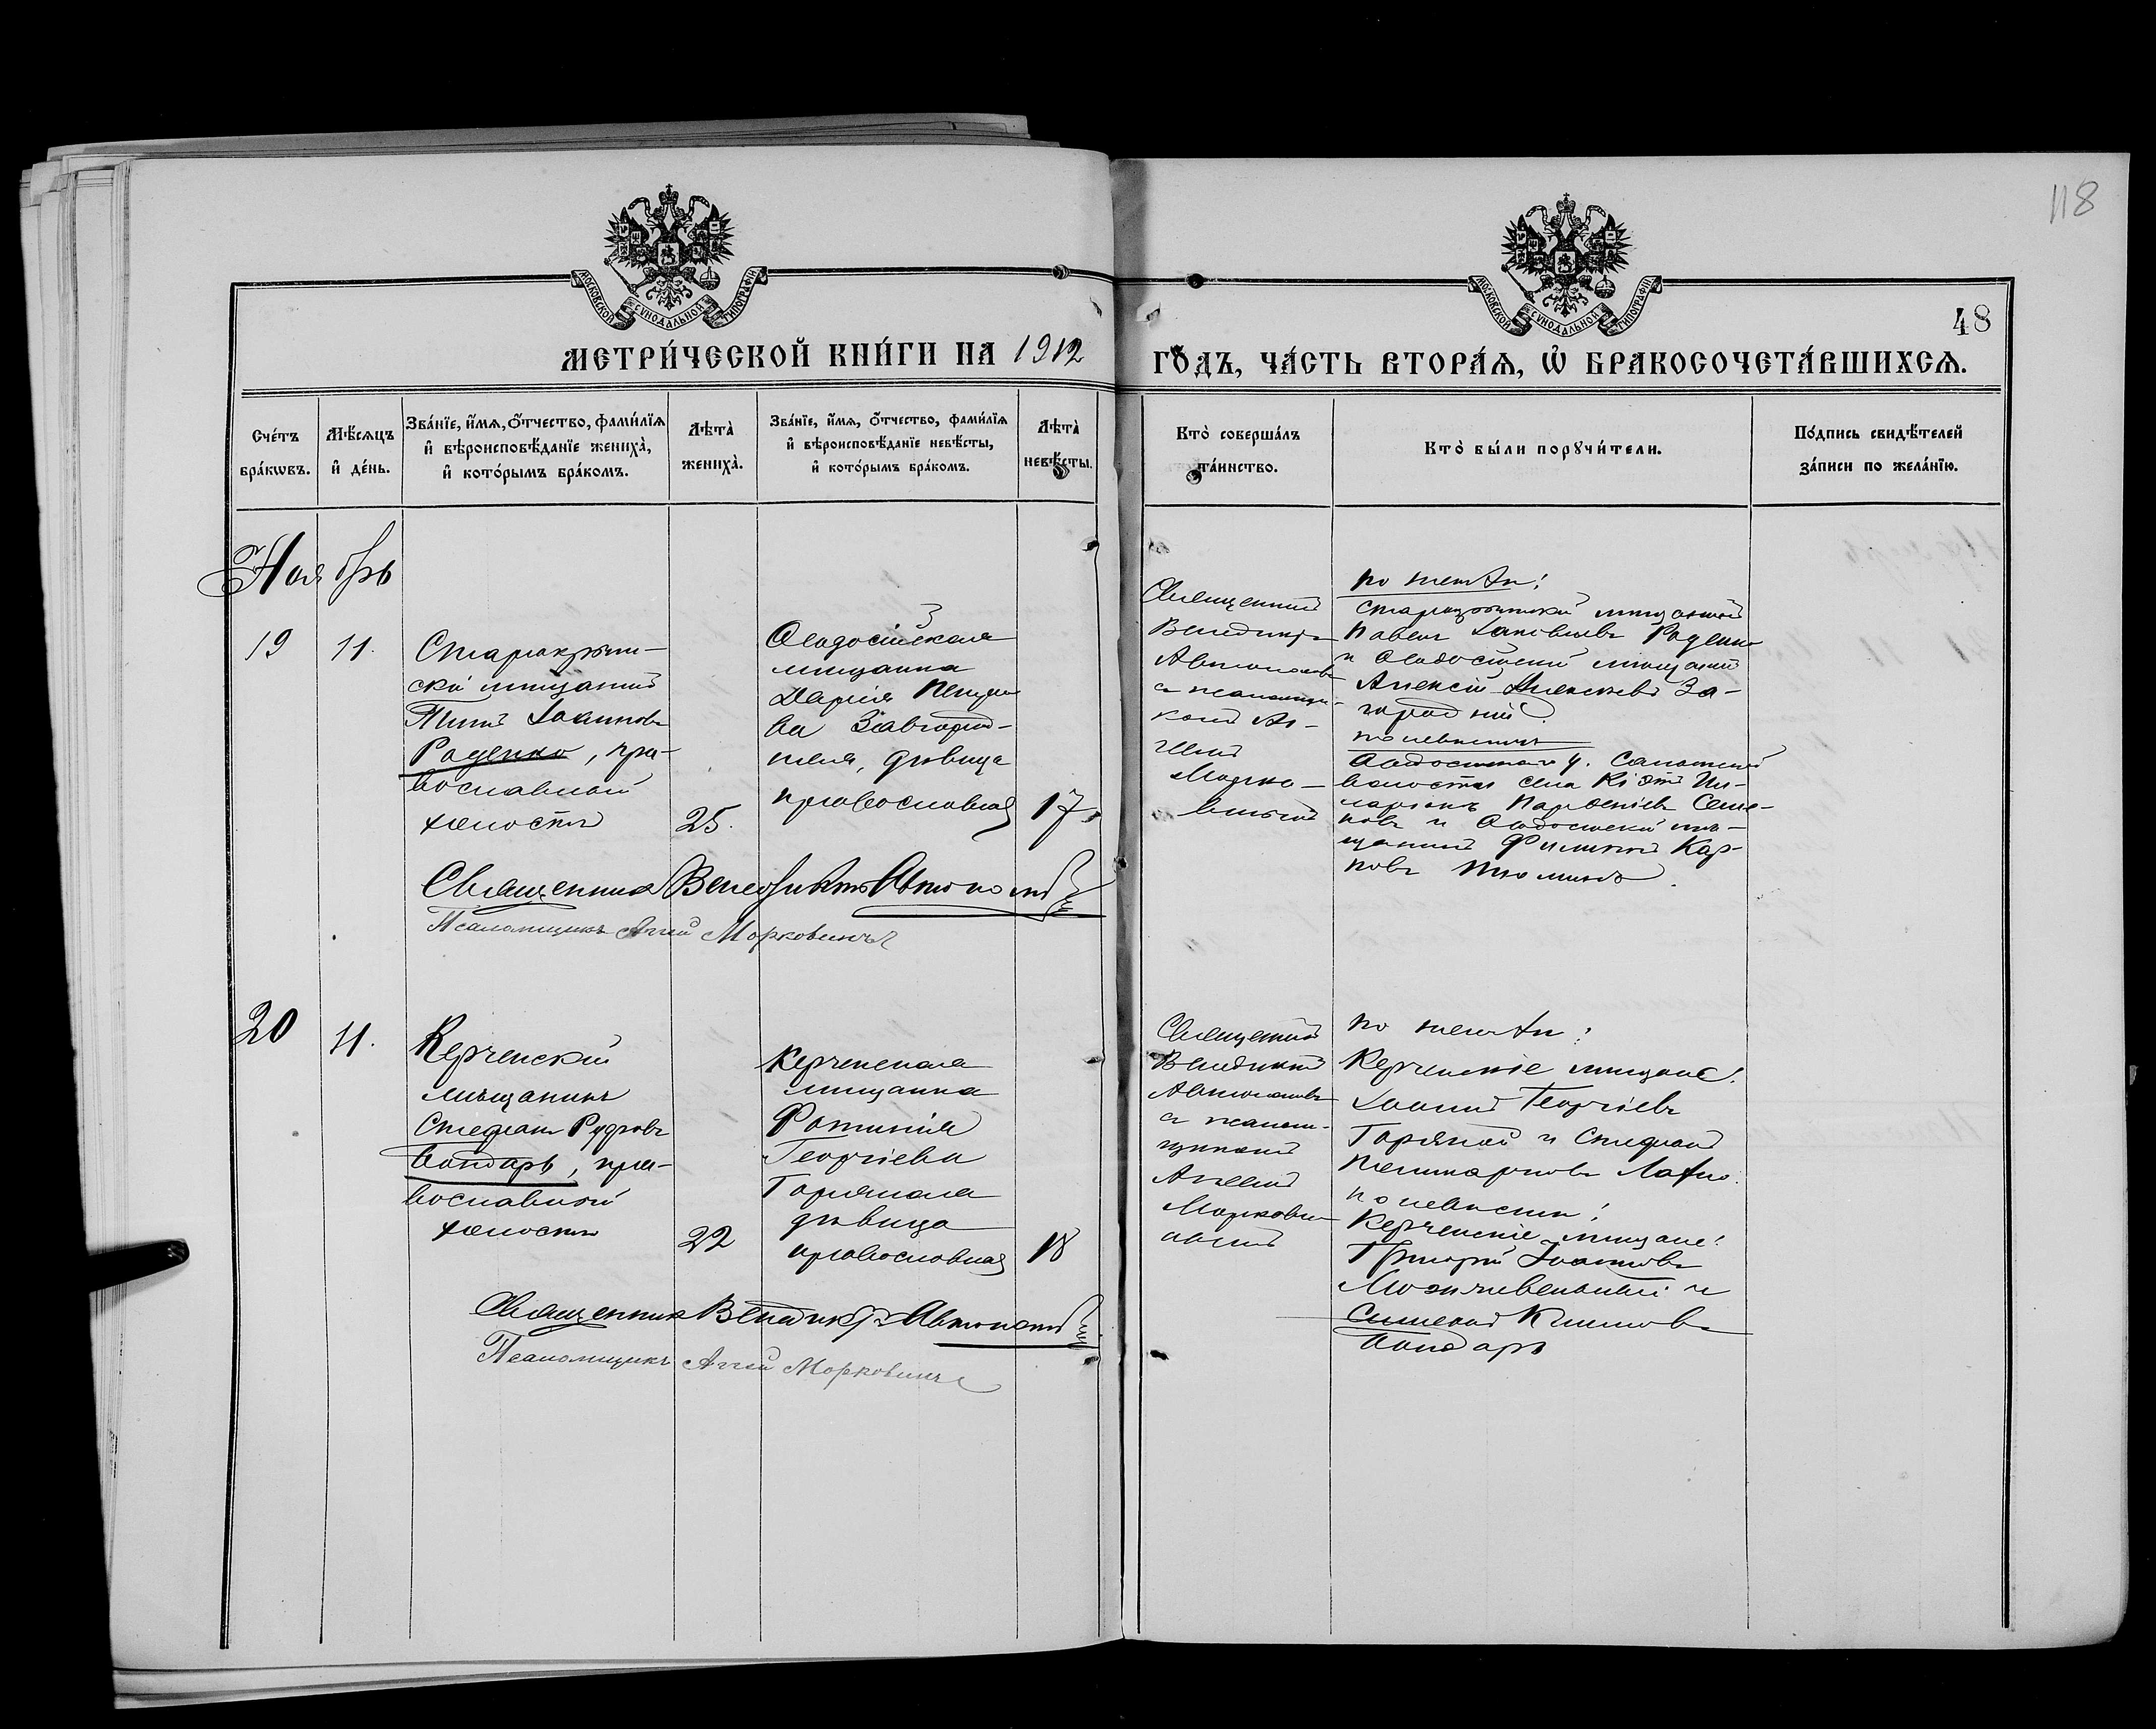 118
МОСКОВСКОЙ СУНОДАЛЬНОЙ ТИПОГРАФІИ
МОСКОВСКОЙ СУНОДАЛЬНОЙ ТИПОГРАФІИ
48
МЕТРИ́ЧЕСКОЙ КНИ́ГИ НА 1912
ГО́ДЪ, ЧА́СТЬ ВТОРА́Я, Ѿ БРАКОСОЧЕТА́ВШИХСЯ.
Сче́тъ
бра́кѡвъ.
Мѣ́сяцъ
и҆ де́нь.
Зва́нїе, и҆́мя, ѻ҆́тчество, фами́лїя
и҆ вѣроисповѣ́данїе жениха̀,
и҆ кото́рымъ бра́комъ.
Лѣта̀
жениха̀.
Зва́нїе, и҆́мя, ѻ҆́тчество, фами́лїя
и҆ вѣроисповѣ́данїе невѣ́сты,
и҆ кото́рымъ бра́комъ.
Лѣта̀
невѣ́сты.
Кто̀ соверша́лъ
та́инство.
Кто̀ бы́ли порꙋчи́тели.
По́дпись свидѣ́телей
за́писи по жела́нїю.
Ноябрь
19
11.
Старокрым-
скій мѣщанинъ
Іоанновъ
Раденко, пра-
вославный
холостъ
25.
Ѳеодосійская
мѣщанка
Дарія
ва Завгород-
няя, дѣвица
православная
17.
Священникъ
Венедиктъ
Автономовъ
съ псаломщи-
комъ Аг-
геемъ
Морко-
винымъ
по женихѣ:
Старокрымскій мѣщанинъ
Павелъ Раденко
и Ѳеодосійскій мѣщанинъ
Алексій Алексѣевъ За-
городній.
по невѣстѣ
Ѳеодосійскаго у.
волости села Кіятъ Ил-
ларіонъ Парѳеніевъ Семе-
новъ и Ѳеодосійскій мѣ-
щанинъ Филиппъ Кар-
повъ
Священникъ Венедиктъ Автономовъ
Псаломщикъ Аггей Морковинъ
20
11.
Керченскій
мѣщанинъ
Стефанъ
Бондарь, пра-
вославный
холостъ
22
Керченская
мѣщанка
Фотинія
Георгіева
Горяная
дѣвица
православная
18
Священникъ
Венедиктъ
Автономовъ
съ псалом-
щикомъ
Аггеемъ
Моркови-
нымъ
по женихѣ:
Керченскіе мѣщане:
Іоаннъ Георгіевъ
Горяной и Стефанъ
по невѣстѣ:
Керченскіе мѣщане:
Григорій Іоанновъ
и
Симеонъ Климовъ
Бондарь
Священникъ Венедиктъ Автономовъ
Псаломщикъ Аггей Морковинъ